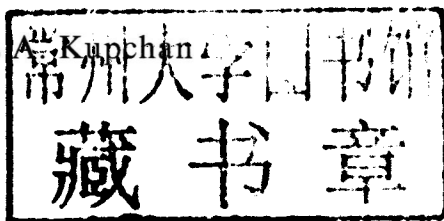 A. Kupchan
常州大学图书馆
藏书章